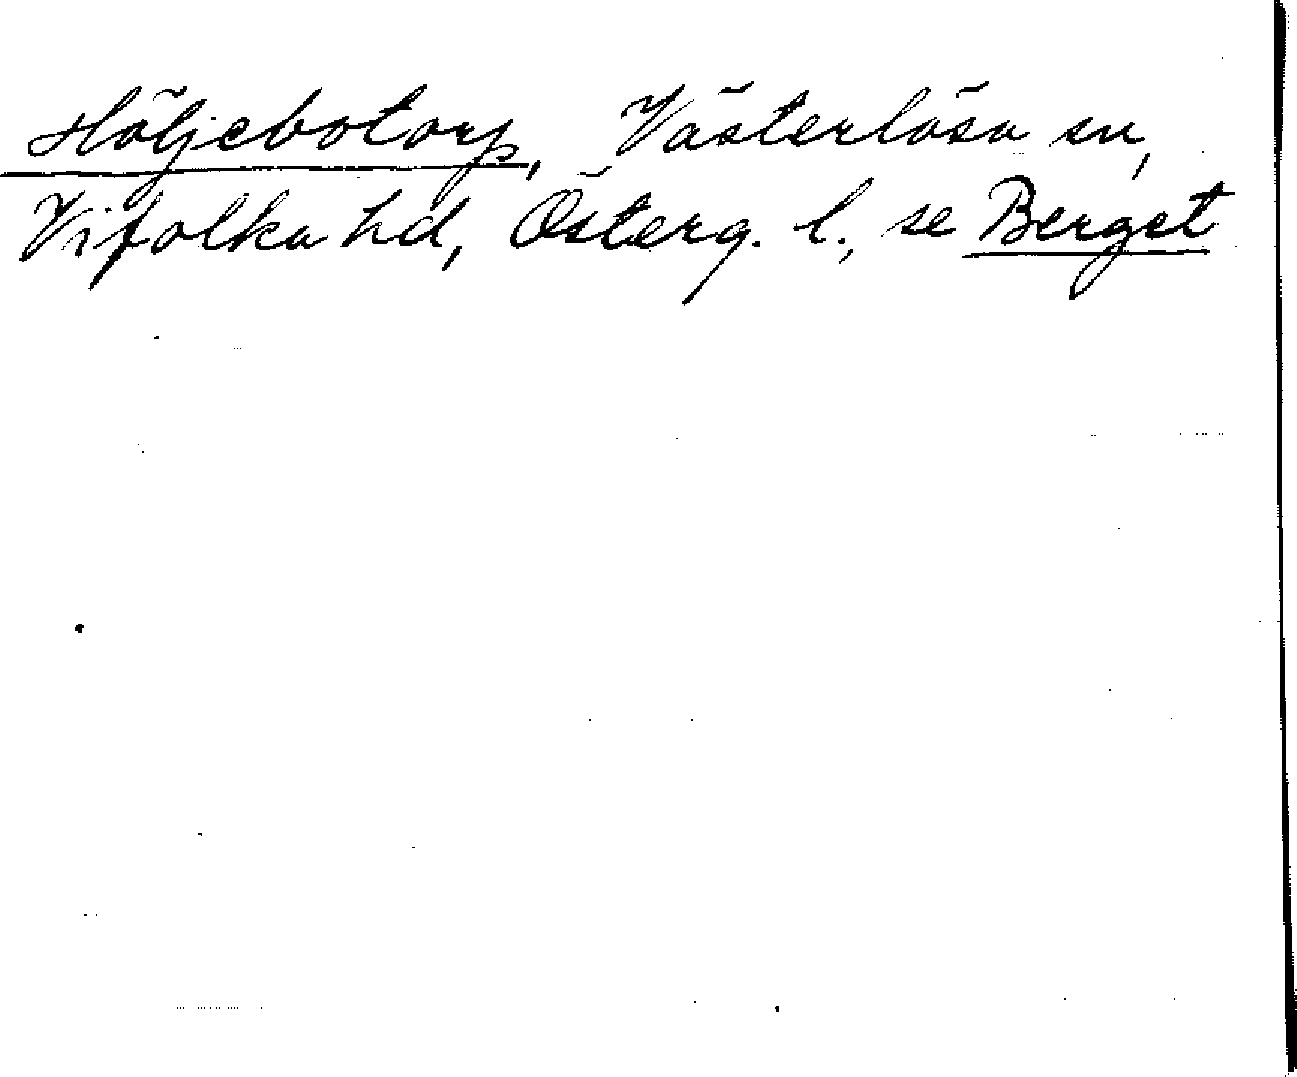 Höljebotorp, Västerlösa sn,
Vifolka hd, Österg. l., se Berget